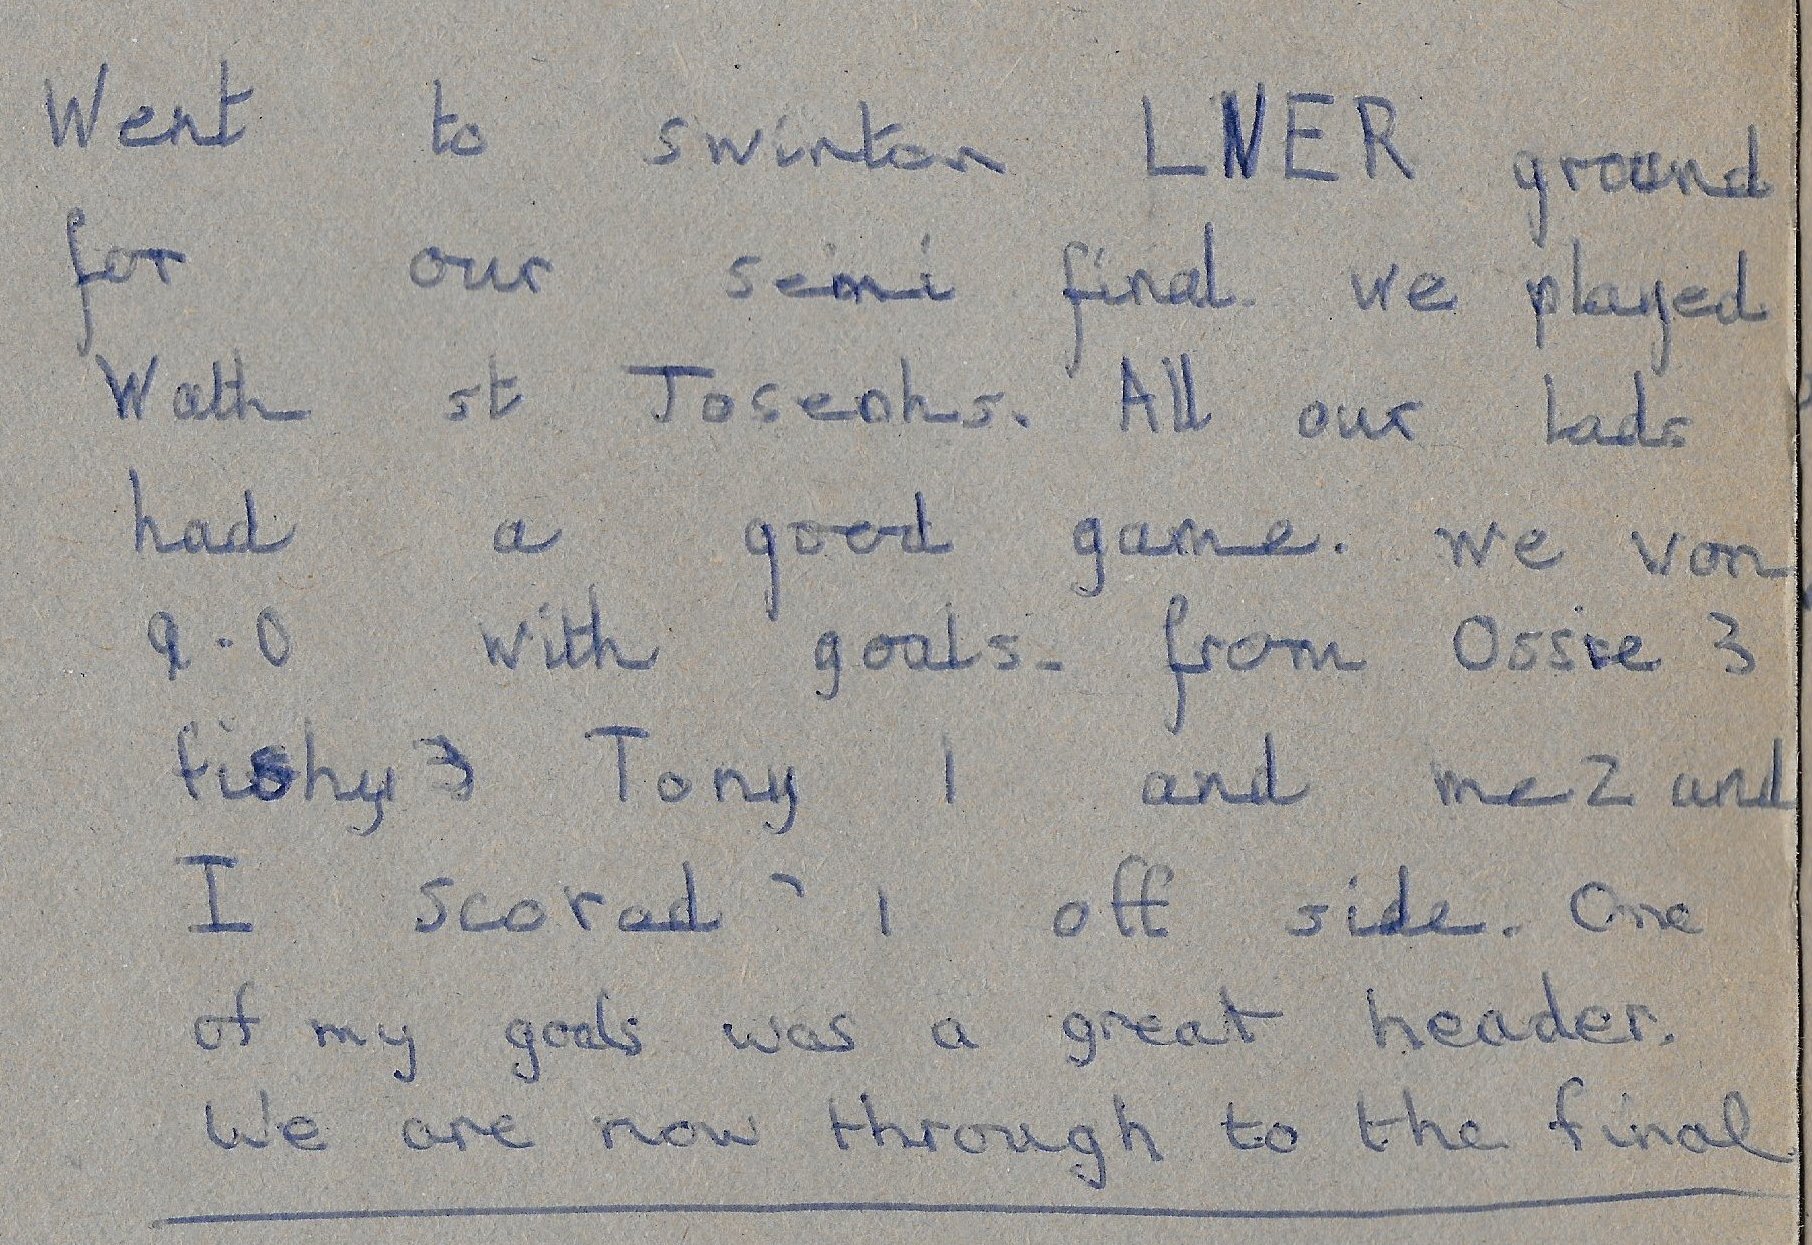 Went to swinton LNER ground
for our semi final. we played
Wath st Josephs. All our lads
had a good game. we won
9-0 with goals. from Ossie 3
fishy 3 Tony 1 and me 2 and
I scorad 1 off side. One
of my goals was a great header.
We are now through to the final